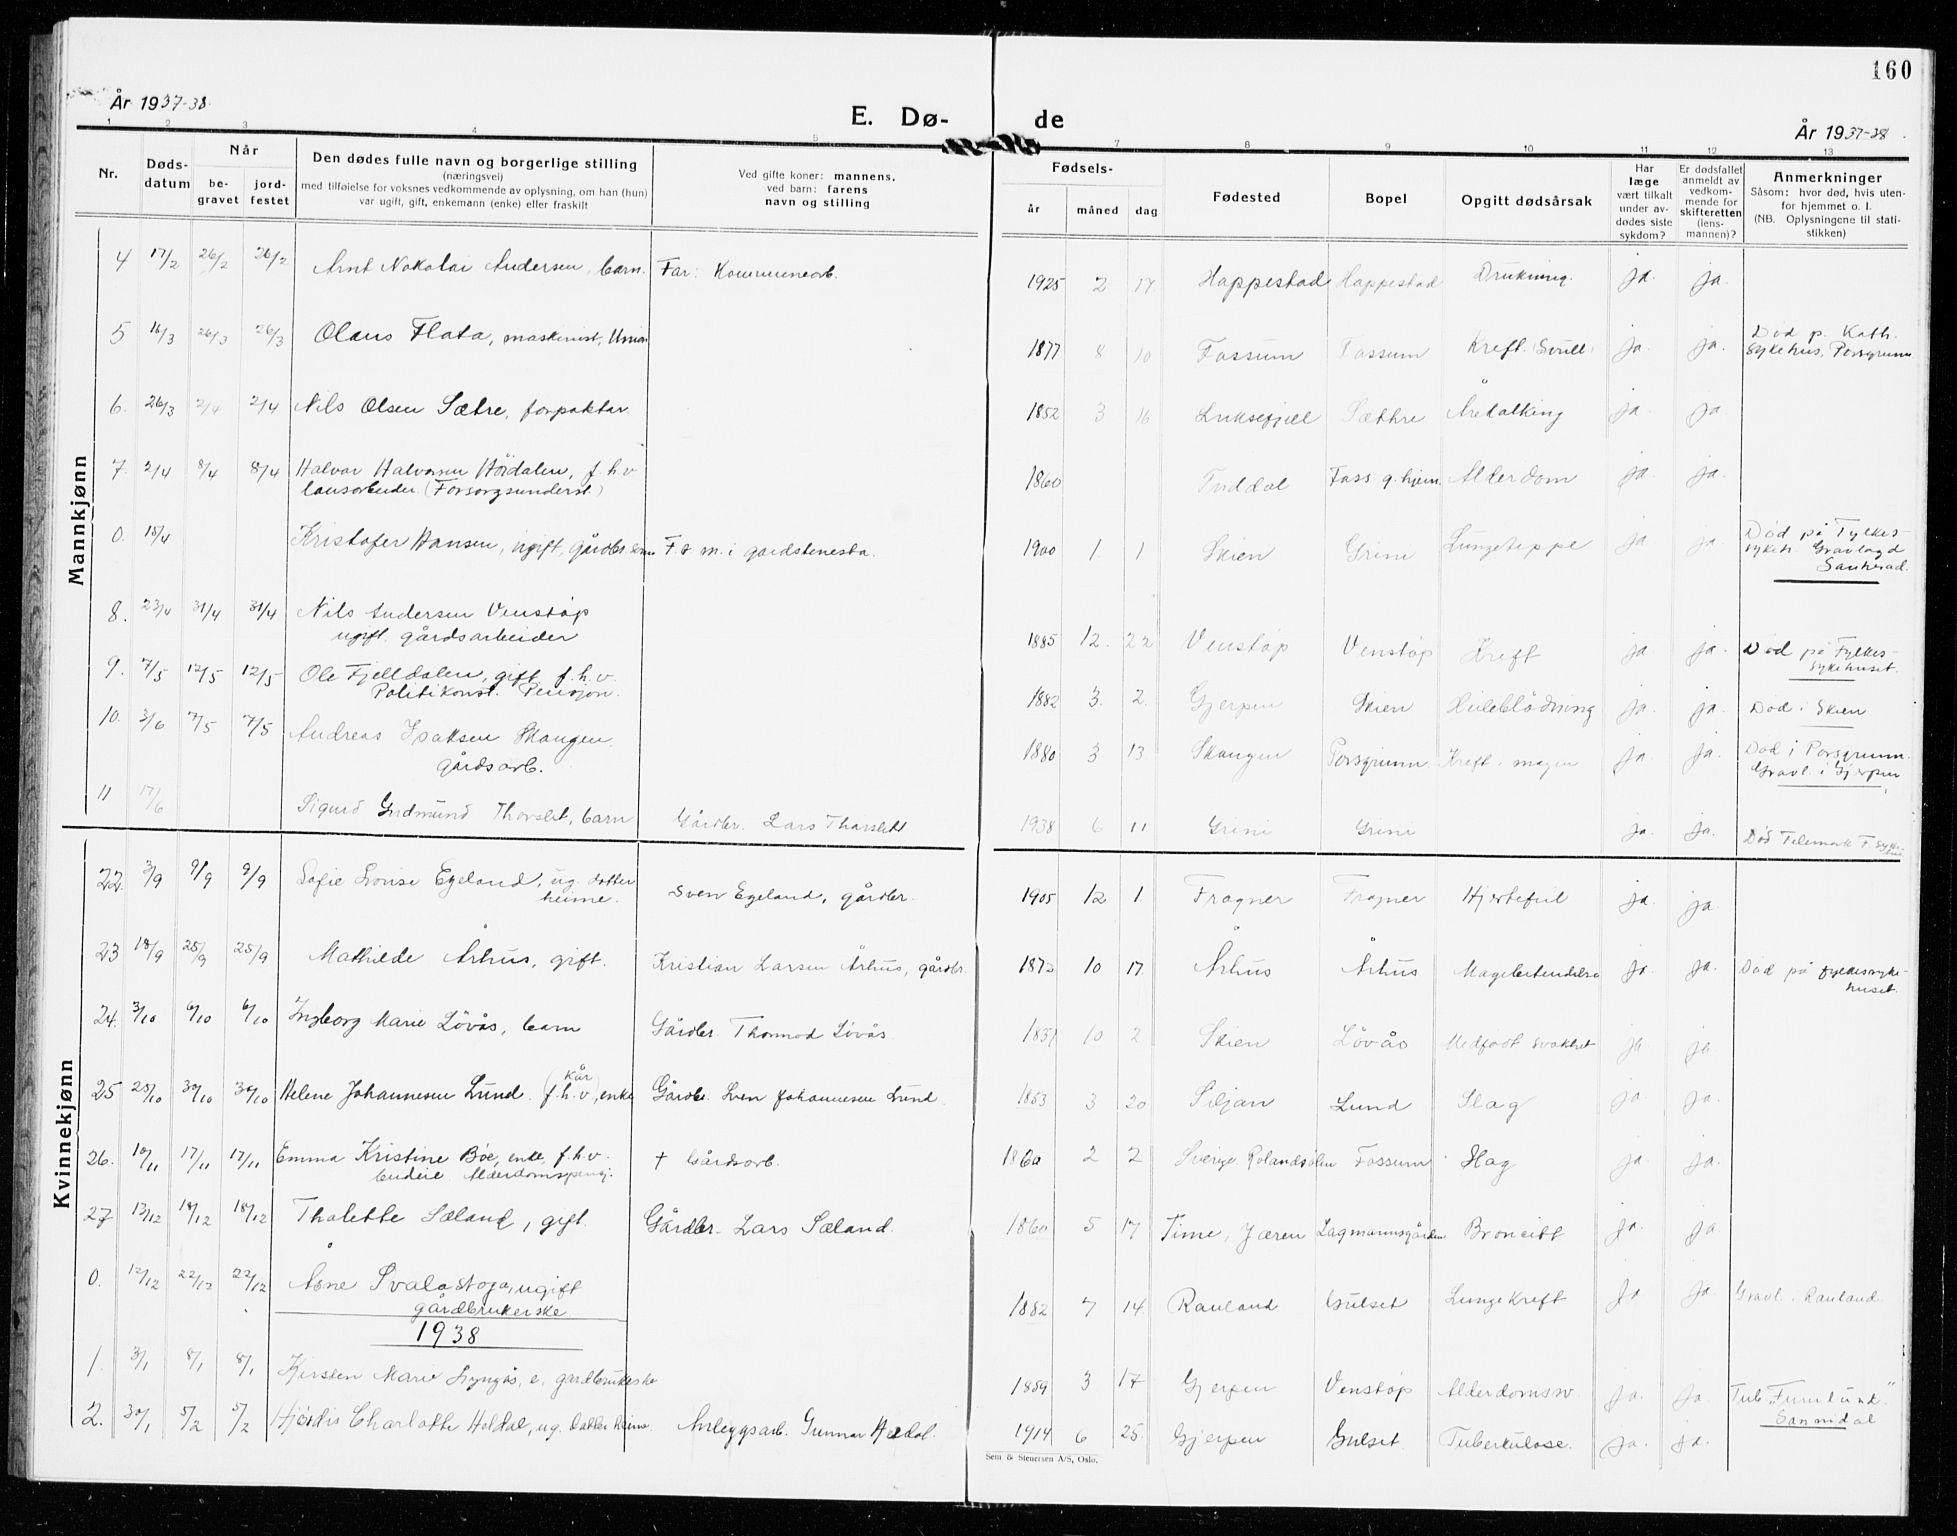 160
År 1937-38
E. Dø-
de
År 1937-38
1 2 3 4 5 7 8 9 10 11 12 13
Nr.
Døds-
datum
Når
be-
gravet
jord-
festet
Den dødes fulle navn og borgerlige stilling
(næringsvei)
med tilføielse for voksnes vedkommende av oplysning, om han (hun)
var ugift, gift, enkemann (enke) eller fraskilt
Ved gifte koner: mannens,
ved barn: farens
navn og stilling
Fødsels-
år måned dag
Fødested
Bopel
Opgitt dødsårsak
Har
læge
vært tilkalt
under av-
dødes siste
sykdom?
Er dødsfallet
anmeldt av
vedkom-
mende for
skifteretten
(lens-
mannen)?
Anmerkninger
Såsom: hvor død, hvis uten-
for hjemmet o. l.
(NB. Oplysningene til stati-
stikken)
Mannkjønn
4 17/2 26/2 26/2 Arnt Nokolai Andersen, barn. Far: Kommunearb. 1925 2 17 Hoppestad Hoppestad Drukning. ja. ja.
5 16/3 26/3 26/3 Olaus Flata, maskinist, Union 1877 8 10 Fossum Fossum Kreft ja. ja. Død p. Kath.
sykehus, Porsgrunn
6. 26/3 2/4 2/4 Nils Olsen Sætre, forpaktar. 1852 3 16 Luksefjell Sæthre Årekalking ja. ja
7. 2/4 8/4 8/4 Halvor Halvorsen Höidalen, f.h.v. 1860 Tuddal Foss g. hjem. Alderdom ja ja.
lausarbeider (Forsorgsunderst.)
0. 15/4 Kristofer Hansen, ugift, gårdbr. sønn F. & m. i gardstenesta. 1900 1. 1 Skien Grini ja ja. Død på Fylkes-
sykeh. Gravlagd
Sauherad.
8. 23/4 31/4 31/4 Nils Andersen Venstöp 1885 12. 22 Venstöp Venstöp Kreft ja ja. Död på Fylkes-
sykehuset.
ugift gårdsarbeider
9. 7/5 12/5 12/5 Ole Fjelldalen, gift, f.h.v. 1882 3. 2. Gjerpen Skien ja. ja. Död i Skien
Politikonst. Pensjon.
10. 3/6 7/5 7/5 Andreas Isaksen Skaugen. 1880 3 13 Skaugen Porsgrunn Kreft i magen ja. ja. Död i Porsgrunn.
Gravl. i Gjerpen
gårdsarb.
11 17/6 Sigurd Gudmund Thorslet, barn Gårdbr. Lars Thorslet 1938 6 11 Grini Grini ja. ja. Död Telemark F syke-
hus
Kvinnekjønn
22. 3/9 9/9 9/9 Sofie Lovise Egeland, ug. datter Sven Egeland, gårdbr. 1905 12 1. Frogner Frogner Hjertefeil ja. ja.
heime.
23 18/9 25/9 25/9 Mathilde Århus, gift. Kristian Larsen Århus, gårdbr. 1872 10 17. Århus Århus Magebetendelse ja. ja. Död på fylkessyke-
huset.
24. 3/10 6/10 6/10 Ingborg Marie Lövås, barn Gårdbr. Thormod Lövås. 10 2 Skien Lövås Medfödt svakhet ja ja.
25 25/10 30/10 30/10 Helene Johannesen Lund. (kår) f.h.v., enke Gårdbr. Sven Johannesen Lund. 1853 3 20 Siljan Lund Slag ja ja.
26. 10/11 17/11 17/11 Emma Kristine Böe, enke, f.h.v. † Gårdsarb. 1860 2 2 Sverge. Fossum Slag ja. ja.
budeie. Alderdomspensj.
27 13/12 18/12 18/12 Thalette Sæland, gift. Gårdbr. Lars Sæland. 1860 5 17 Time, Jæren Lagmannsgården Broncitt ja. ja
0. 12/12 22/12 22/12 Åsne Svalastoga, ugift 1882 7 14 Rauland Gulset Lungekreft ja ja Gravl. Rauland.
gårdbrukerske
1938
1. 3/1 8/1 8/1 Kirsten Marie Lyngås, e. gardbrukerske 1859 3 17 Gjerpen Venstöp Alderdomssv. ja. ja.
2. 30/1 5/2 5/2 Hjördis Charlotte Holdal, ug. Datter heime Anleggsarb. Gunnar Holdal. 1914 6 25. Gjerpen Gulset Tuberkulose. ja. ja. Tub. "Furulund."
Sannidal
Sem & Stenersen A/S, Oslo.